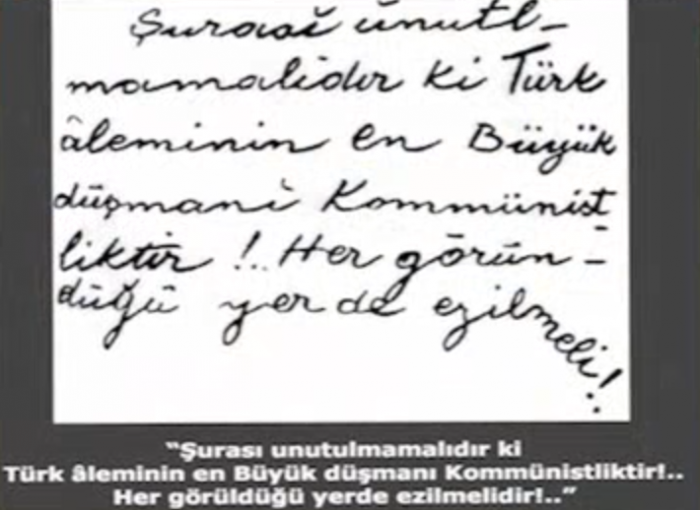 Şurası unutl-
mamalıdır ki Türk
âleminin en Büyük
düşmanı Kommünist-
liktir!.. Her görün-
düğü yerde ezilmeli!..
"Şurası unutulmamalıdır ki
Türk âleminin en Büyük düşmanı Kommünistliktir!..
Her görüldüğü yerde ezilmelidir!.."